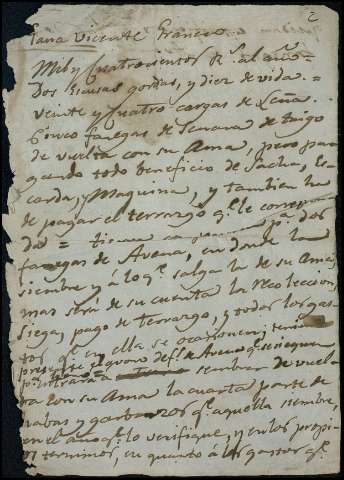 2
Gana Vicente Franco
Mil y quatrocientos Rs. al año
Dos escusas gordas, y diez de vida =
veinte y quatro cargas de Leña =
Cinco fanegas de Senara de trigo
de vuelta con su Ama, pero pa
gando todo beneficio de Sacha, Es
carda, y Maquina, y tambien ha
de pagar el terrazgo qe. le correspon
da = tierra pa. dos
fanegas de Avena, en donde la
siembre y á lo qe. salga la de su Ama,
mas será de su cuenta la recoleccion,
siega, pago de terrazgo, y todos los gas
tos qe. en ella se ocasionen;
de Avena qe.
sembrar de vuel
ta con su Ama la quarta parte de
rabas y garbanzos qe. aquella siembre,
en el año qe. lo verifique, y en los propi
os terminos, en quanto á los gastos qe.